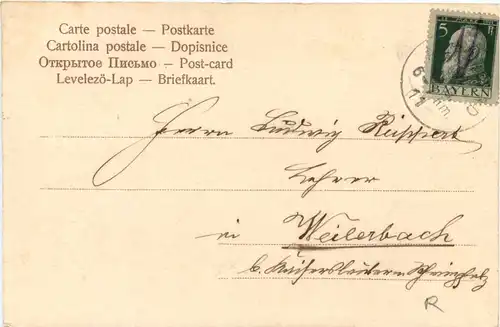 Carte postale — Postkarte
Cartolina postale — Dopisnice
Открытое Письмо — Post-card
Levelezö-Lap — Briefkaart.
5
BAYERN
Herrn Ludwig Ruppert
Lehrer
in
Weilerbach
b. Kaiserslautern Rheinpfalz
R